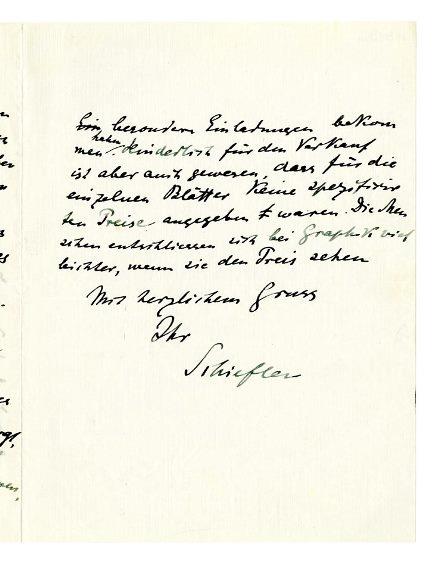 besondern Einladungen bekom
men haben. Hinderlich für den Verkauf
ist aber auch gewesen, dass für die
einzelnen Blätter keine spezifizir
ten Preise angegeben waren. Die Men
schen entschliessen sich bei Graphik viel
leichter, wenn sie den Preis sehen
Mit herzlichem Gruss
Ihr
Schiefler